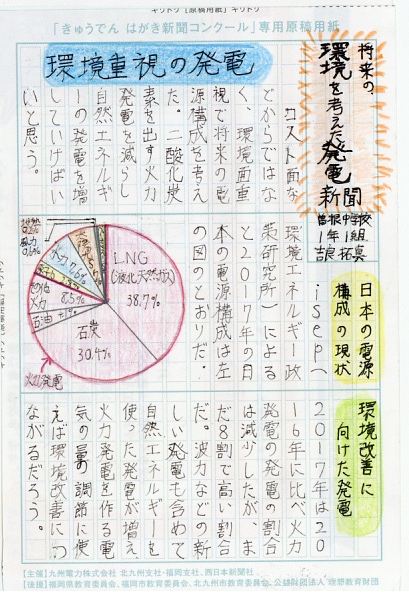 キリトリ【原稿用紙】キリトリ
「きゅうでん はがき新聞コンクール」専用原稿用紙
将来の、
環境を考えた発電
新聞
曽根中学校
1年1組
吉良拓真
環境重視の発電
コスト面な
どからではな
く、環境面重
視で将来の電
源構成を考え
た。二酸化炭
素を出す火力
発電を減らし
自然エネルギ
ーの発電を増
していけばい
いと思う。
日本の電源
構成の現状
isep(
環境エネルギー政
策研究所)による
と2017年の日
本の電源構成は左
の図のとおりだ。
LNG
(液化天然ガス)
38.7%
石炭
30.4%
石油
その他
火力
8.5%
水力7.6%
風力
0.6%
火力発電
環境改善に
向けた発電
2017年は20
16年に比べ火力
発電の発電の割合
は減少したが、ま
だ8割で高い割合
だ。波力などの新
しい発電も含めて
自然エネルギーを
使った発電が増え、
火力発電を作る電
気の量の調節に使
えば環境改善につ
ながるだろう。
【主催】九州電力株式会社 北九州支社・福岡支社、西日本新聞社
【後援】福岡県教育委員会、福岡市教育委員会、北九州市教育委員会、公益財団法人 理想教育財団